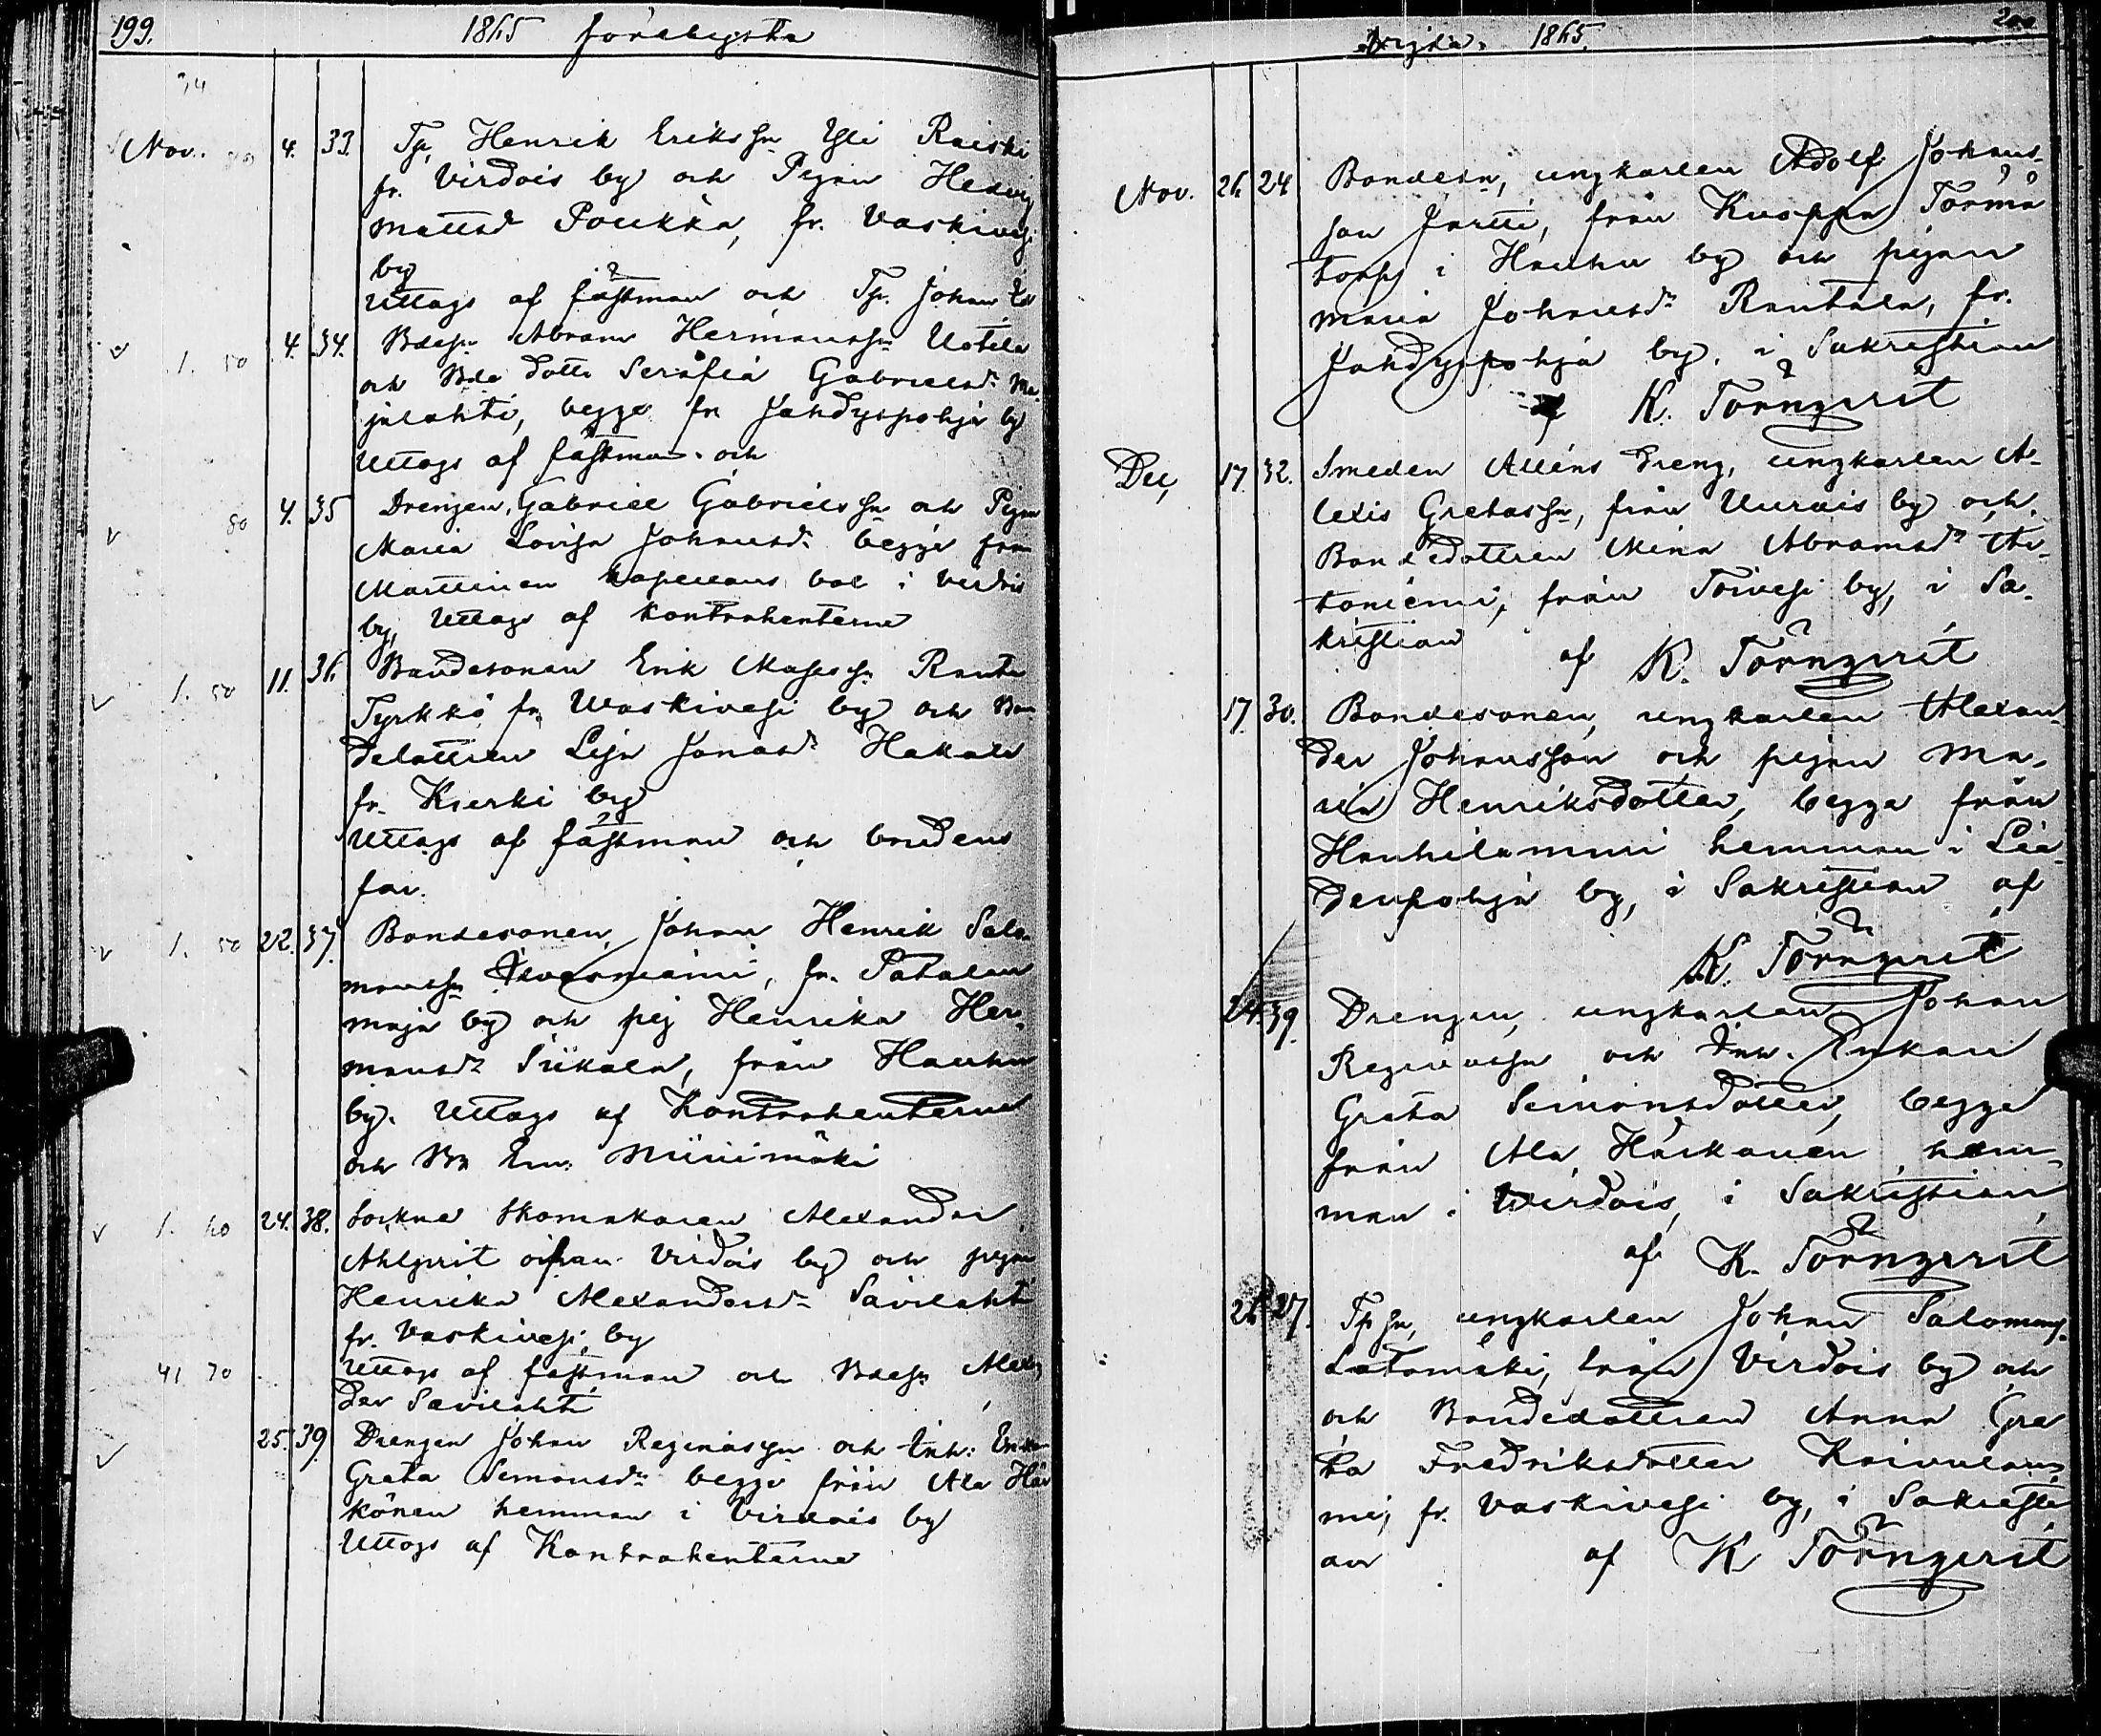 199. 1865 förelysta
Nov. 4. 33. Tp, Henrik Erikssn Yli Raiski
fr. Virdois by och Pigan Hedvig
Mattsd Poukka, fr. Vaskivesi
by
Uttogs af fästman och Tp. Johan
1. 50 4. 34. Bdesn Abram Hermanssn Uotila
och Bde dottr Serafia Gabrielsdr Ma-
julahti, begge fr Jähdyspohja by
Uttogs af fästman och
80 4. 35 Drengen, Gabriel Gabrielssn och Pigan
Maria Lovisa Johansdr begge från
Marttinen kapellans bol i Virdois
by, Uttogs af Kontrahenterne
1. 50 11. 36. Bondesonen Erik Mosessn Ranta
Tyrkkö fr Waskivesi by och Bon
dedottren Lisa Jonasdr Hakala
fr. Kierki by
Uttogs af fästman och brudens
far.
1. 50 22. 37. Bondesonen, Johan Henrik Salo-
monssn, fr. Patalan
maja by och pig Henrika Her-
mansdr Siikala, från Hauhu
by. Uttogs af Kontrahenterne
och Bn Em. Niinimäki
1. 60 24. 38. Sockne Skomakaren Alexander
Ahlqvist ifrån Virdois by och pigan
Henrika Alexandersdr Savilahti
fr. Vaskivesi by
41 70 Uttogs af fästman och Bdesn Alexan
der Savilahti
25. 39 Drengen Johan Reginassn och Inh: Enkan
Greta Simonsdr begge från Ala Här
könen hemman i Virdois by
Uttogs af Kontrahenterne
Vigda. 1865. 200
Nov. 26 24 Bondesn, ungkarlen Adolf Johans-
son Jartti, från Kuoppa Törmä
torp i Hauhu by och pigan
Maria Johansdr Rantala, fr.
Jähdyspohja by. i Sakristian
af K. Törnqvist
Dec, 17. 32. Smeden Alléns Dreng, ungkarlen A-
lexis Gretassn, från Uurais by och
Bondedottren Mina Abramsdr Au-
toniemi, från Toivesi by, i Sa-
kristian af K. Törnqvist
17. 30. Bondesonen, ungkarlen Alexan
der Johansson och pigan Ma-
ria Henriksdotter, begge från
Hauhilammi hemman i Liä-
denpohja by, i Sakristian af
K. Törnqvist
24. 39. Drengen, ungkarlen Johan
Reginassn och Inh. Enkan
Greta Simonsdotter, begge
från Ala Härkönen hem-
man i Virdois, i Sakristian
af K. Törnqvist
26 27. Tpsn, ungkarlen Johan Salomons-
Latomäki, från Virdois by och
och Bondedottren Anna Gre
ta Fredriksdotter Koivulam
mi, fr. Vaskivesi by, i Sakristi
an af K Törnqvist